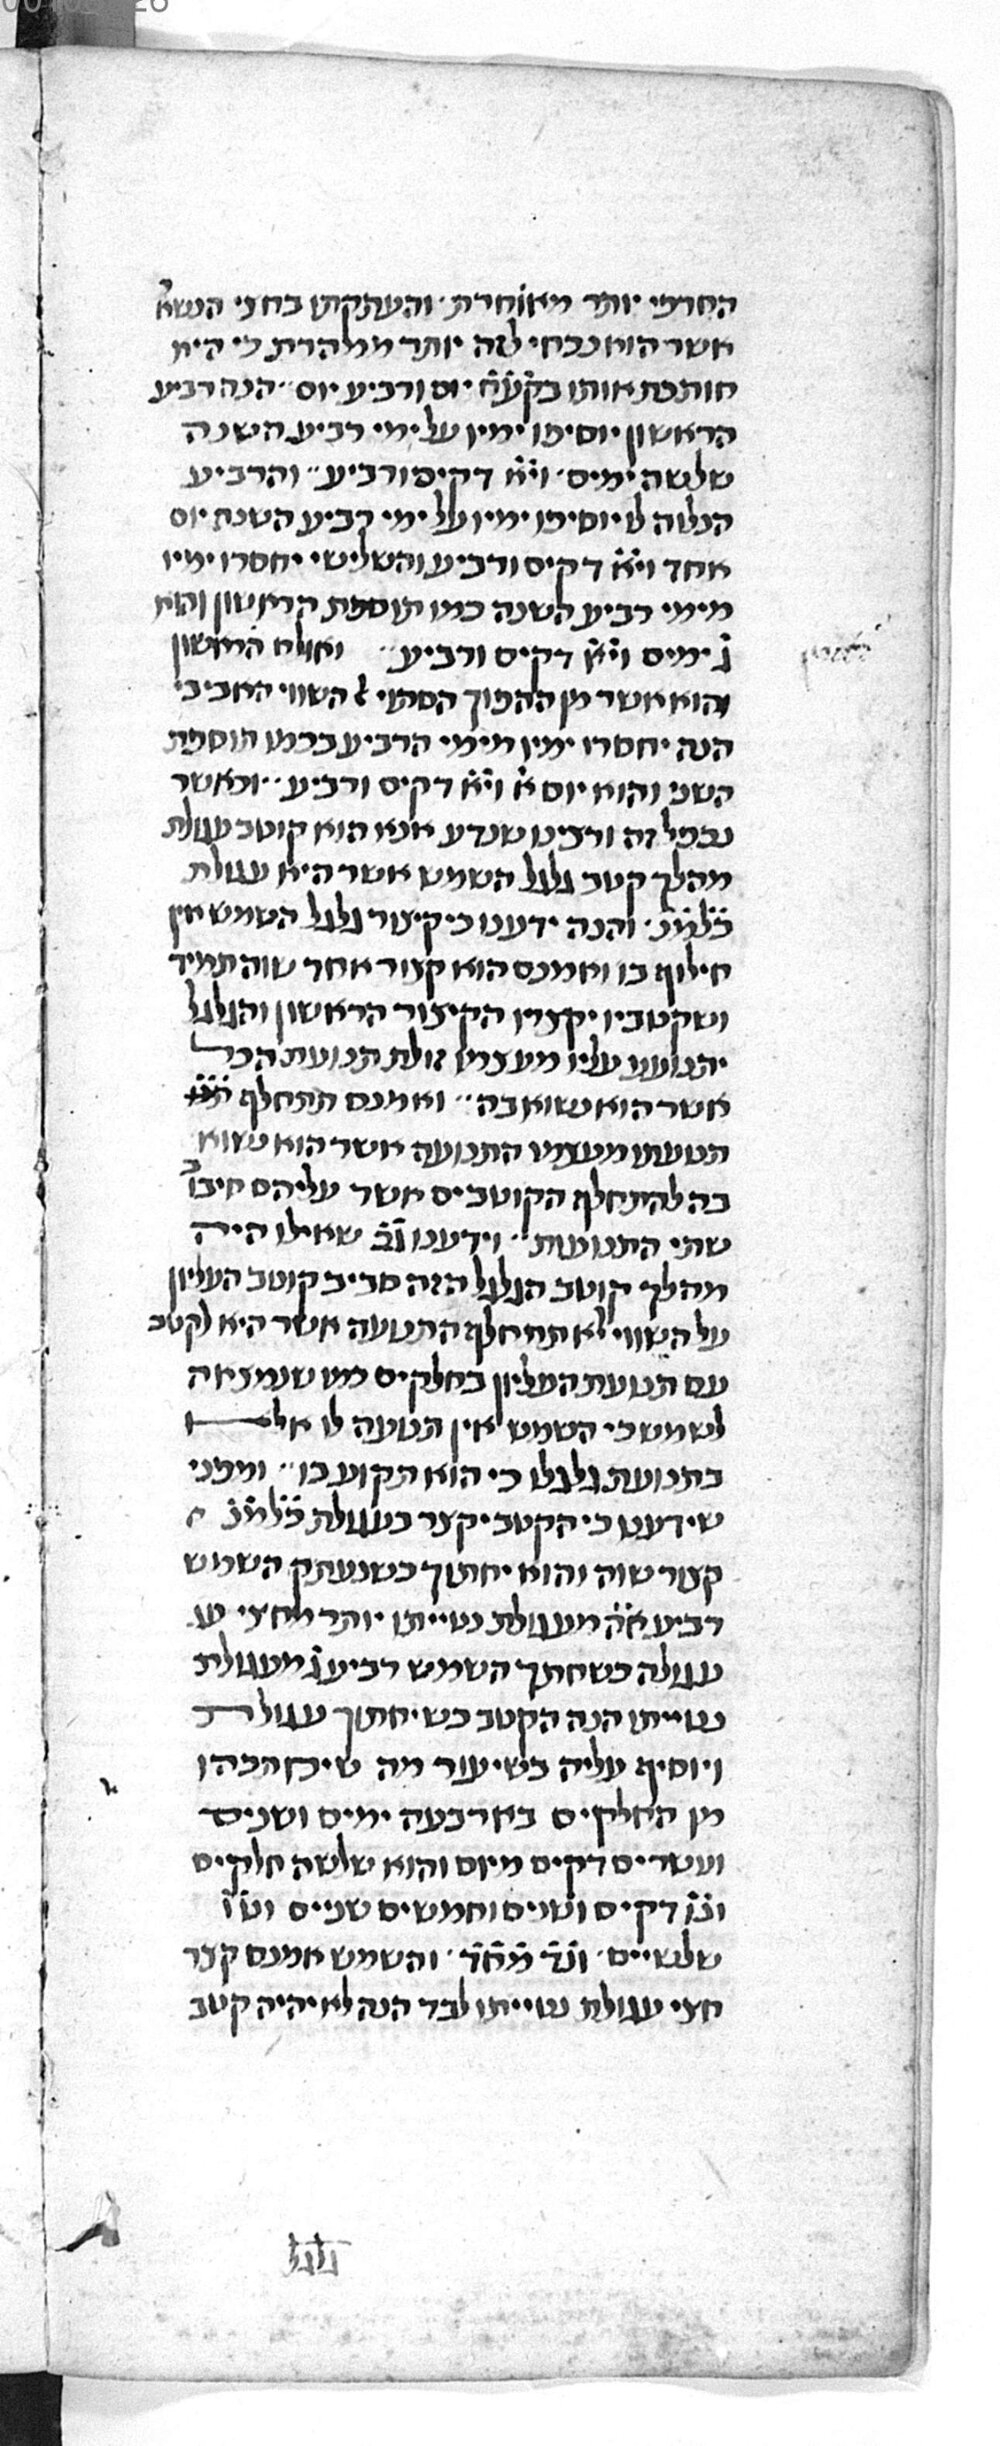 החרפי יותר מאוחרת והעתקתו בחצי הנשא׳
אשר הוא נכחי לזה יותר ממהרת כי היא
חותכת אותו בקעח יום ורביע יום הנה רביע
הראשון יוסיפו ימיו על ימי רביע השנה
שלשה ימים ויא דקים ורביע והרביע
הנלוה לו יוסיפו ימיו על ימי רביע השנה יום
אחד ויא דקים ורביע והשלישי יחסרו ימיו
מימי רביע השנה כמו תוספת הראשון והוא
ג ימים ויא דקים ורביע ואולם הראשון
והוא אשר מן ההפוך הסתוי ל השווי האביבי
הנה יחסרו ימיו מימי הרביע בכמו תוספת
השני והוא יום א ויא דקים ורביע וכאשר
נכפל זה ורצינו שנדע אנא הוא קוטב עגולת
מהלך קטב גלגל השמש אשר היא עגולת
כלמנ והנה ידענו כי קיצור גלגל השמש אין
חילוף בו ואמנם הוא קצור אחד שוה תמיד
ושקטביו יקצרו הקיצור הראשון והגלגל
יתנועע עליו מעצמו זולת תנועת הכל
אשר הוא נשוא בה ואמנם תתחלף
תנועתו מעצמו התנועה אשר הוא נשוא
בה להתחלף הקוטבים אשר עליהם סיבו׳
שתי התנועות וידענו גב שאילו היה
מהלך קוטב הגלגל הזה סביב קוטב העליון
על השווי לא תתחלף התנועה אשר היא לקטב
עם תנועת העליון בחלקים כמו שנמצאה
לשמש כי השמש אין תנועה לו אלא
בתנועת גלגלו כי הוא תקוע בו ומפני
שידענו כי הקטב יקצר בעגולת כלמנ
קצור שוה והוא יחתוך כשנעתק השמש
רביע אה מעגולת נטייתו יותר מחצי עג
עגולה כשחתך השמש רביע ג מעגולת
נטייתו הנה הקטב כשיחתוך עגולת
ויוסיף עליה כשיעור מה שיכזבהו
מן החלקים בארבעה ימים ושנים
ועשרים דקים מיום והוא שלשה חלקים
ונו דקים ושנים וחמשים שניים וטו
שלשיים ונד מחד והשמש אמנם קצר
חצי עגולת נטייתו לבד הנה לא יהיה קטב
גלגל